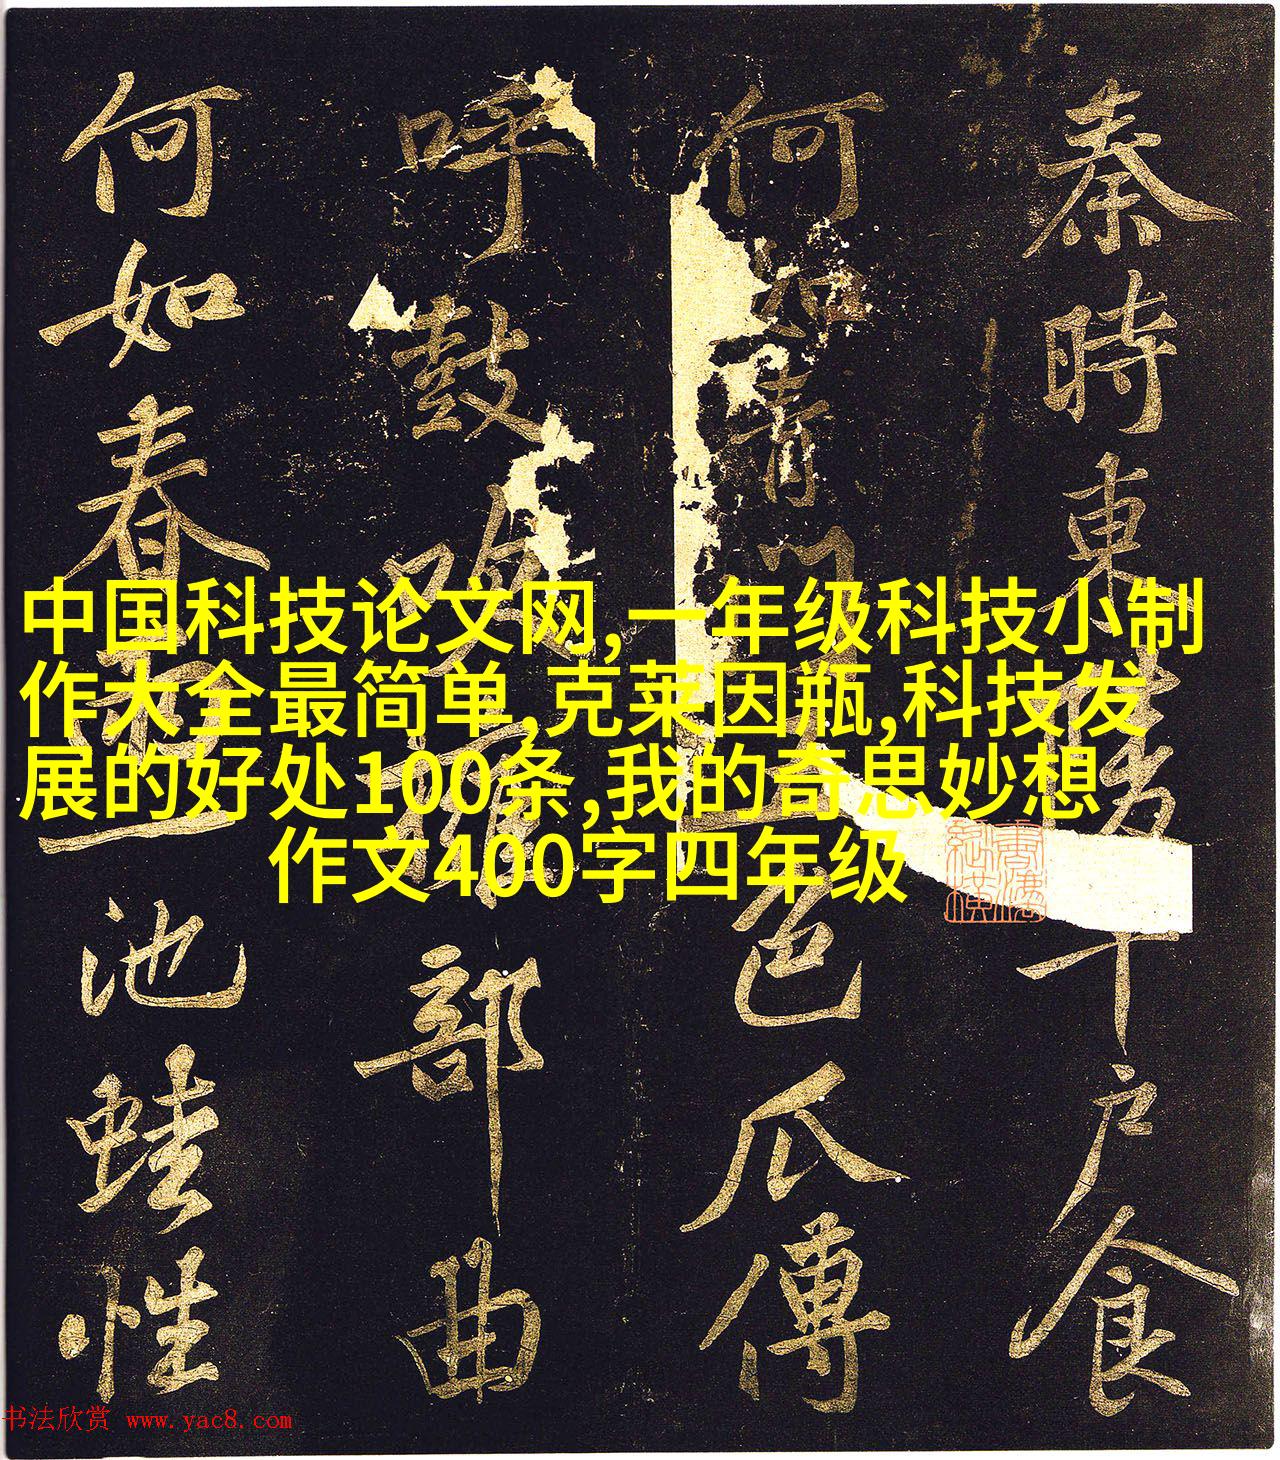 秦時東陵千戶食
何如青門五色瓜傳
呼鼓吹擁部曲
何如春雨一池蛙性
中国科技论文网,一年级科技小制
作大全最简单,克莱因瓶,科技发
展的好处100条,我的奇思妙想
作文400字四年级
书法欣赏 www.yac8.com